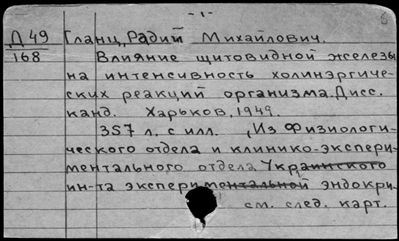 - 1 -
Д 49 Гланц, Радий Михайлович.
168 Влияние щитовидной железы
на интенсивность холинэргиче-
ских реакций организма. Дисс.
канд. Харьков, 1949.
357 л. с илл. (Из Физиологи-
ческого отдела и клинико-экспери-
ментального отдела Украинского
ин-та экспериментальной эндокри-
см. след. карт.